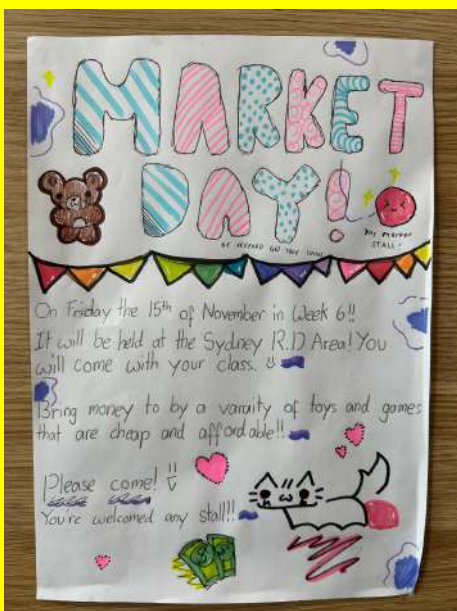 MARKET
DAY!
MARKET
STALL!
On Friday the 15th of November in Week 6!!
It will be held at the Sydney R.D Area! You
will come with your class.
Bring money to by a varaity of toys and games
that are cheap and affordable!!
Please come!
You're welcomed any stall!!